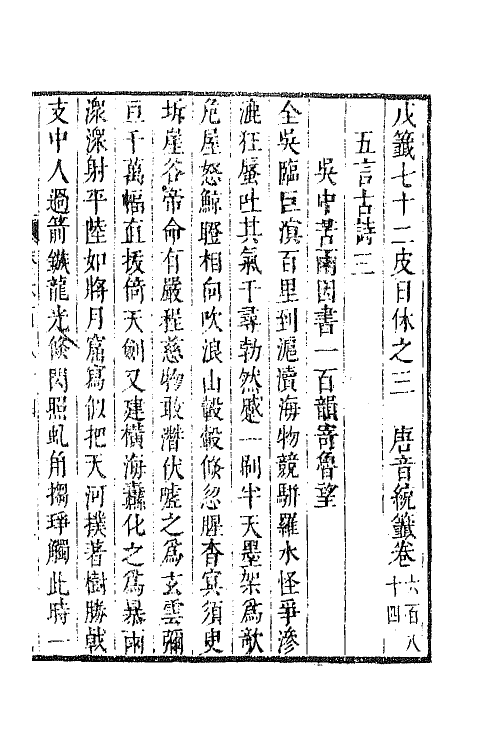 戊籤七十二皮日休之三　唐音統籤卷六百八十四
五言古詩三
吳中苦雨因書一百韻寄魯望
全吳臨巨溟百里到滬瀆海物競駢羅水怪爭滲
漉狂蜃吐其氣千尋勃然蹙一刷半天墨架為欹
危屋怒鯨瞪相向吹浪山轂轂倏忽腥杳冥須臾
坼崖谷帝命有嚴程慈物敢潛伏噓之為玄雲彌
亘千萬幅直拔倚天劍又建橫海纛化之為暴雨
潨潨射平陸如將月窟寫似把天河撲著樹勝戟
支中人過箭鏃龍光倏閃照虬角搊琤觸此時一